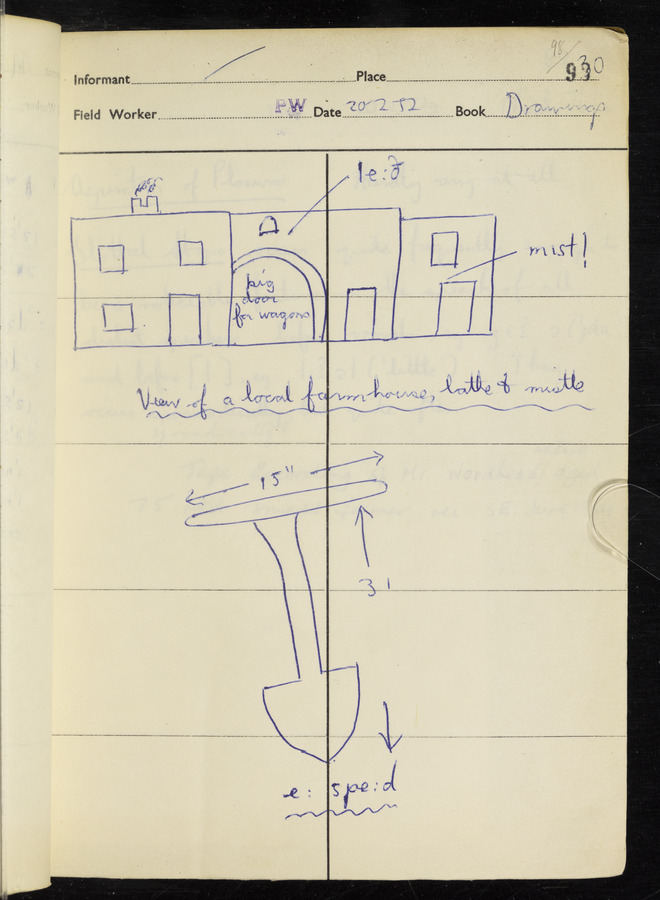 98/
930
Informant Place
Field Worker PW Date 20 2 52 Book Drawings
le:ð
mist!
big
door
for wagons
View of a local farmhouse, lathe & mistle
15"
3'
e: spe:d